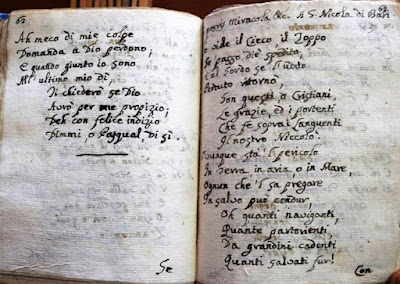 62
Ah meco di mie colpe
Domanda a Dio perdono;
E quando giunto io sono
All'ultimo mio di
Ti chiederò se Dio
Avrò per me propizio;
Deh con felice indizio
Dimmi o Pasqual di sì.
Se
63
miracola &c. A S. Nicola di Bari
vide il Cieco, il Zoppo
Se passo die' spedito,
E al Sordo se l'udito
Perduto ritornò.
Son questi a Cristiani
Le grazie, ed i portenti
Che fe sopra i languenti
Il nostro Niccolò.
Dunque sta il pericolo
In terra in aria o in Mare,
Ognun che 'l sa pregare
In salvo può condur,
Oh quanti naviganti,
Quante partorienti,
Da grandini cadenti
Quanti salvati fur!
Con